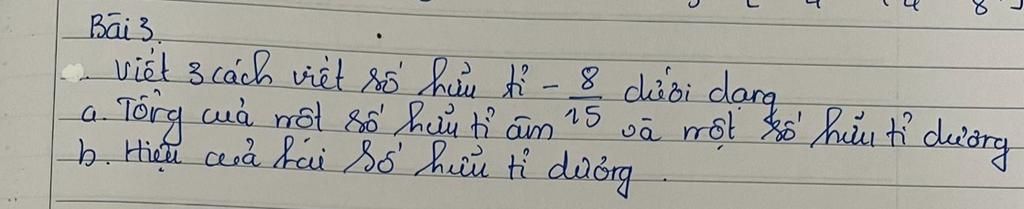 Bài 3.
Viết 3 cách viết số hữu tỉ - 8/15 dưới dạng
a. Tổng của một số hữu tỉ âm và một số hữu tỉ dương
b. Hiệu của hai số hữu tỉ dương.